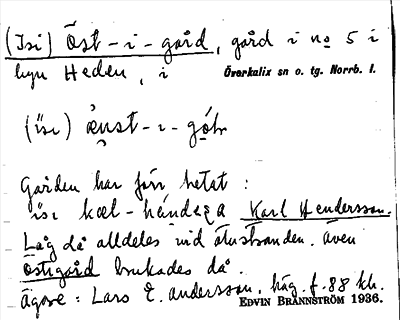 (Isi) Öst-i-gård, gård i no 5 i
byn Heden, i Överkalix sn o. tg. Norrb. l.
(ısı) ænst-ı-gó
Gården har förr hetat:
ısı kæl-händeṣa Karl Hendersson.
Låg då alldeles vid älvstranden. Även
Östigård brukades då.
Ägare: Lars E. Andersson, häg. f. 88 kh.
EDVIN BRÄNNSTRÖM 1936.